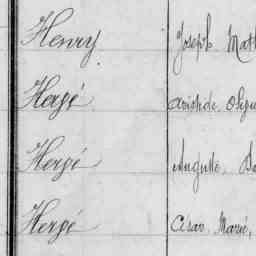 Henry Joseph, Math
Hergé Aristide,
Hergé Auguste,
Hergé César, Marie,